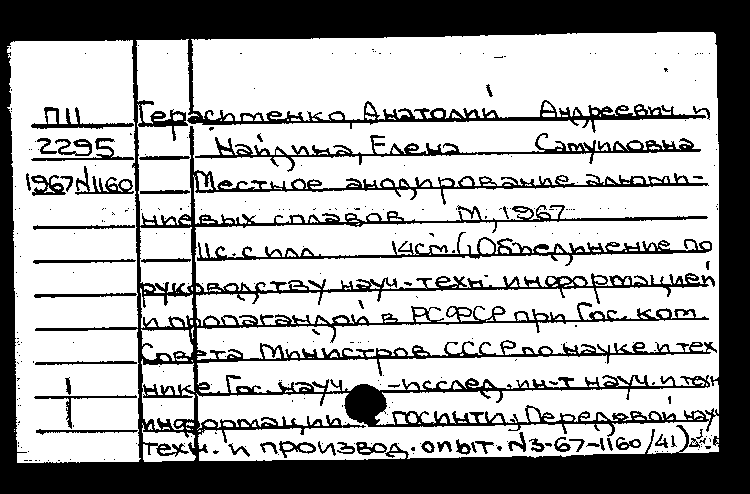 П11 Герасименко, Анатолий Андреевич и
2295 Найдина, Елена Самуиловна
1967 N1160 Местное анодирование алюми-
ниевых сплавов. М., 1967
11с. с илл. 14см. (Объединение по
руководству науч.-техн. информацией
и пропагандой в РСФСР при Гос. ком.
Совета Министров СССР по науке и тех
нике. Гос. науч.-исслед. ин-т науч. и техн
информации ГОСИНТИ; Передовой науч
техн. и производ. опыт. N3-67-1160/41)